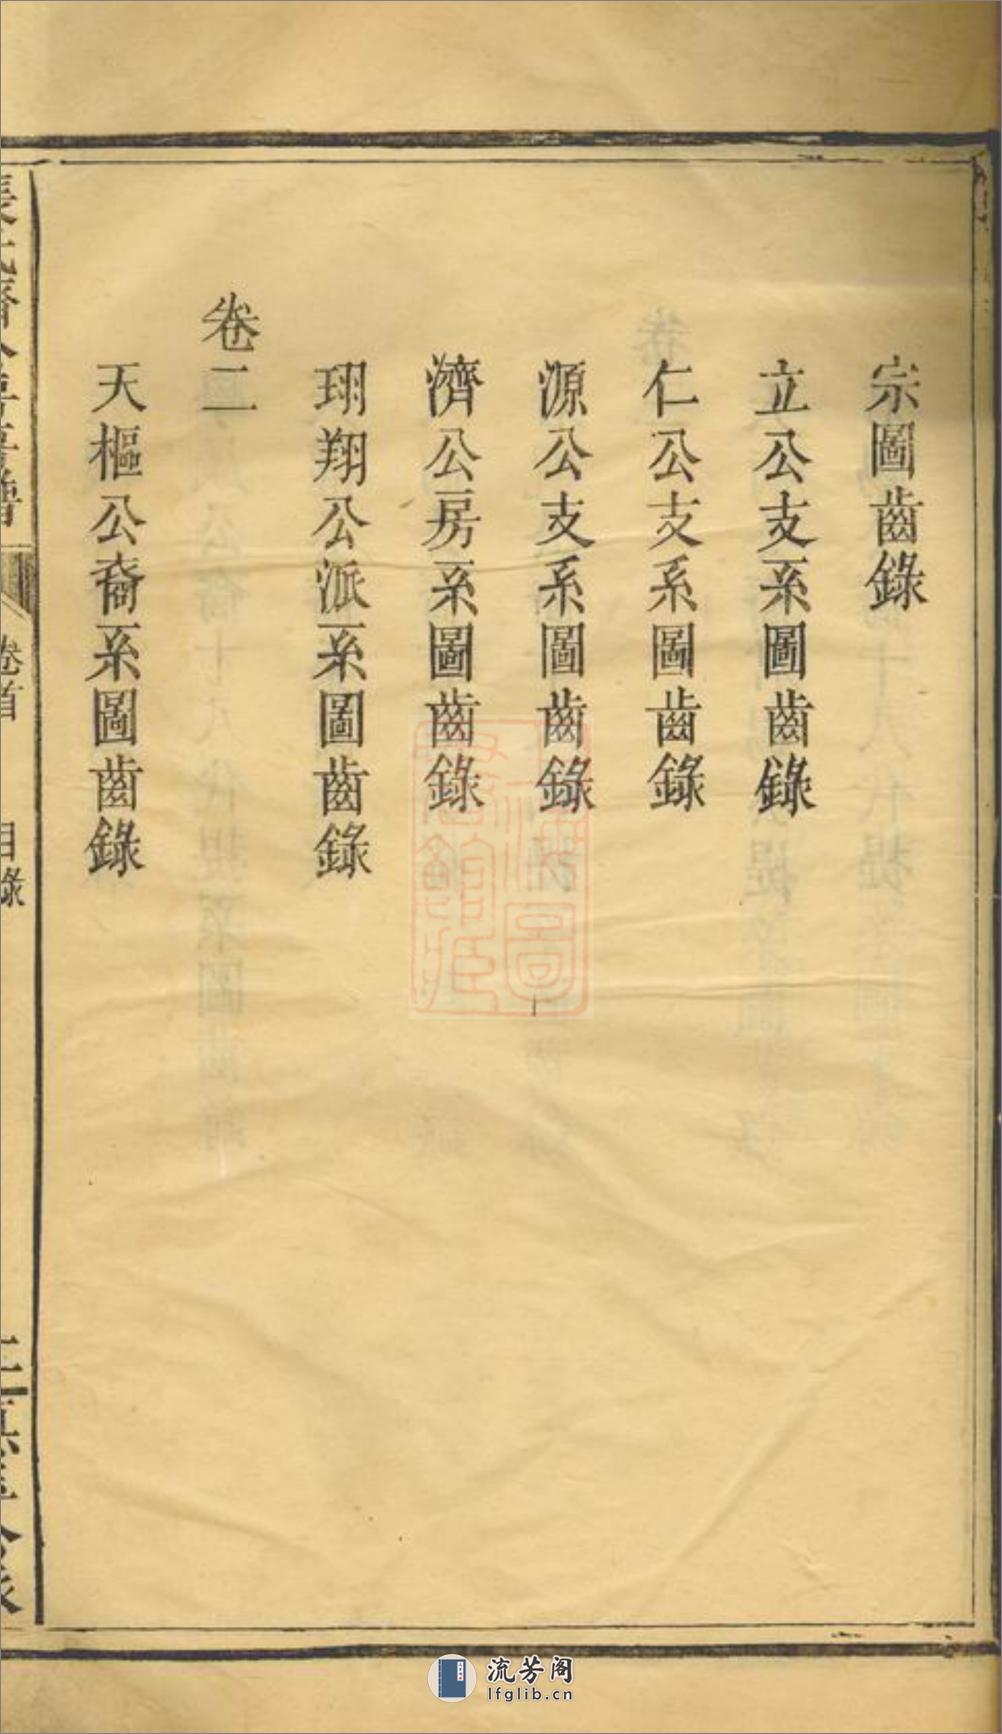 宗圖齒錄
立公支系圖齒錄
仁公支系圖齒錄
源公支系圖齒錄
濟公房系圖齒錄
珝翔公派系圖齒錄
卷二
天樞公裔系圖齒錄
卷首
目錄
流芳阁
lfglib.cn